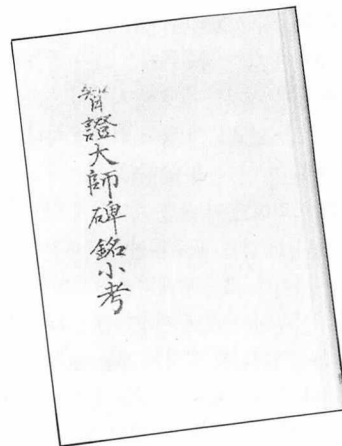 智證大師碑銘小考